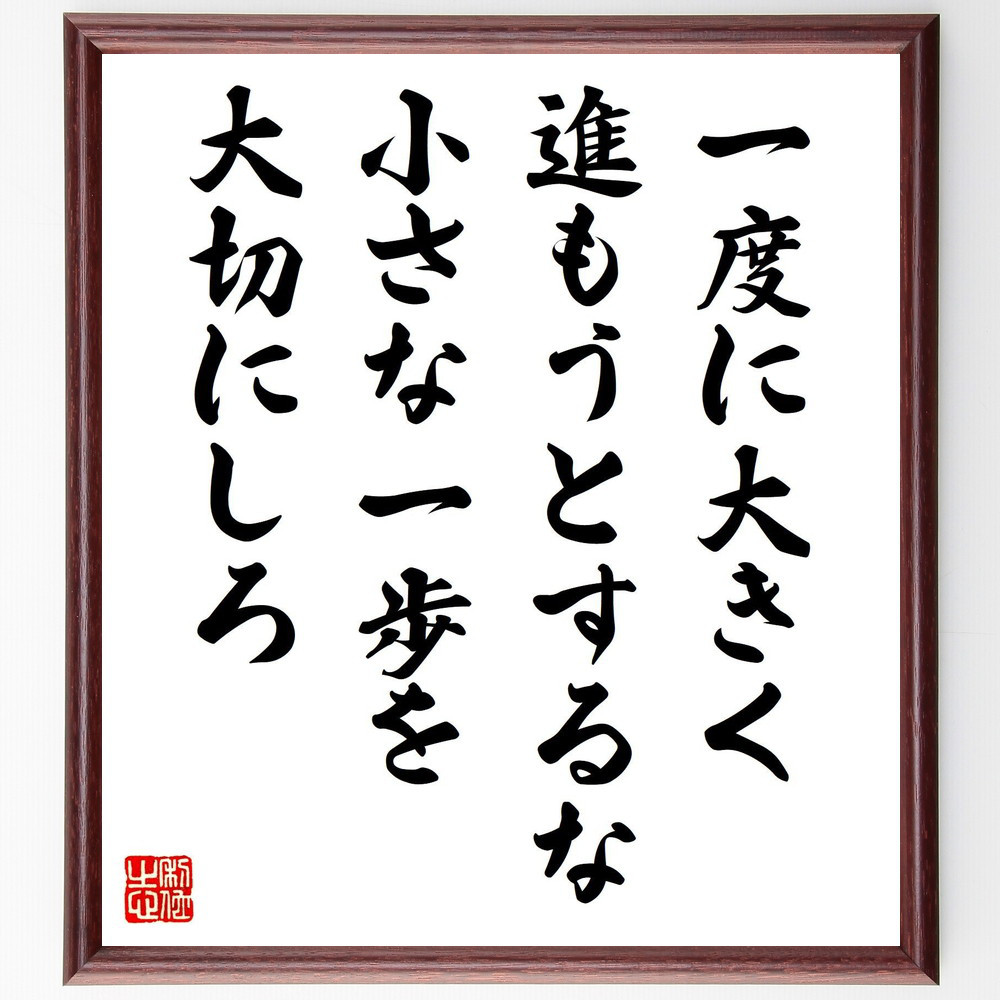 一度に大きく
進もうとするな
小さな一歩を
大切にしろ